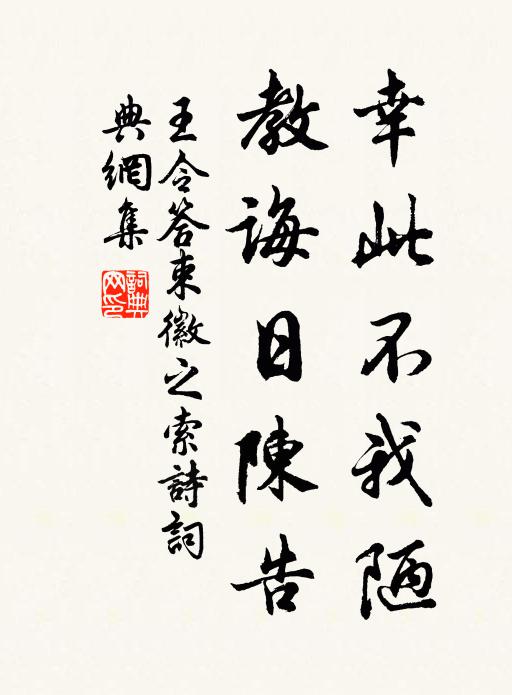 幸此不我陋
教誨日陳告
王令答束徽之索詩詞
典網集
詞典網印